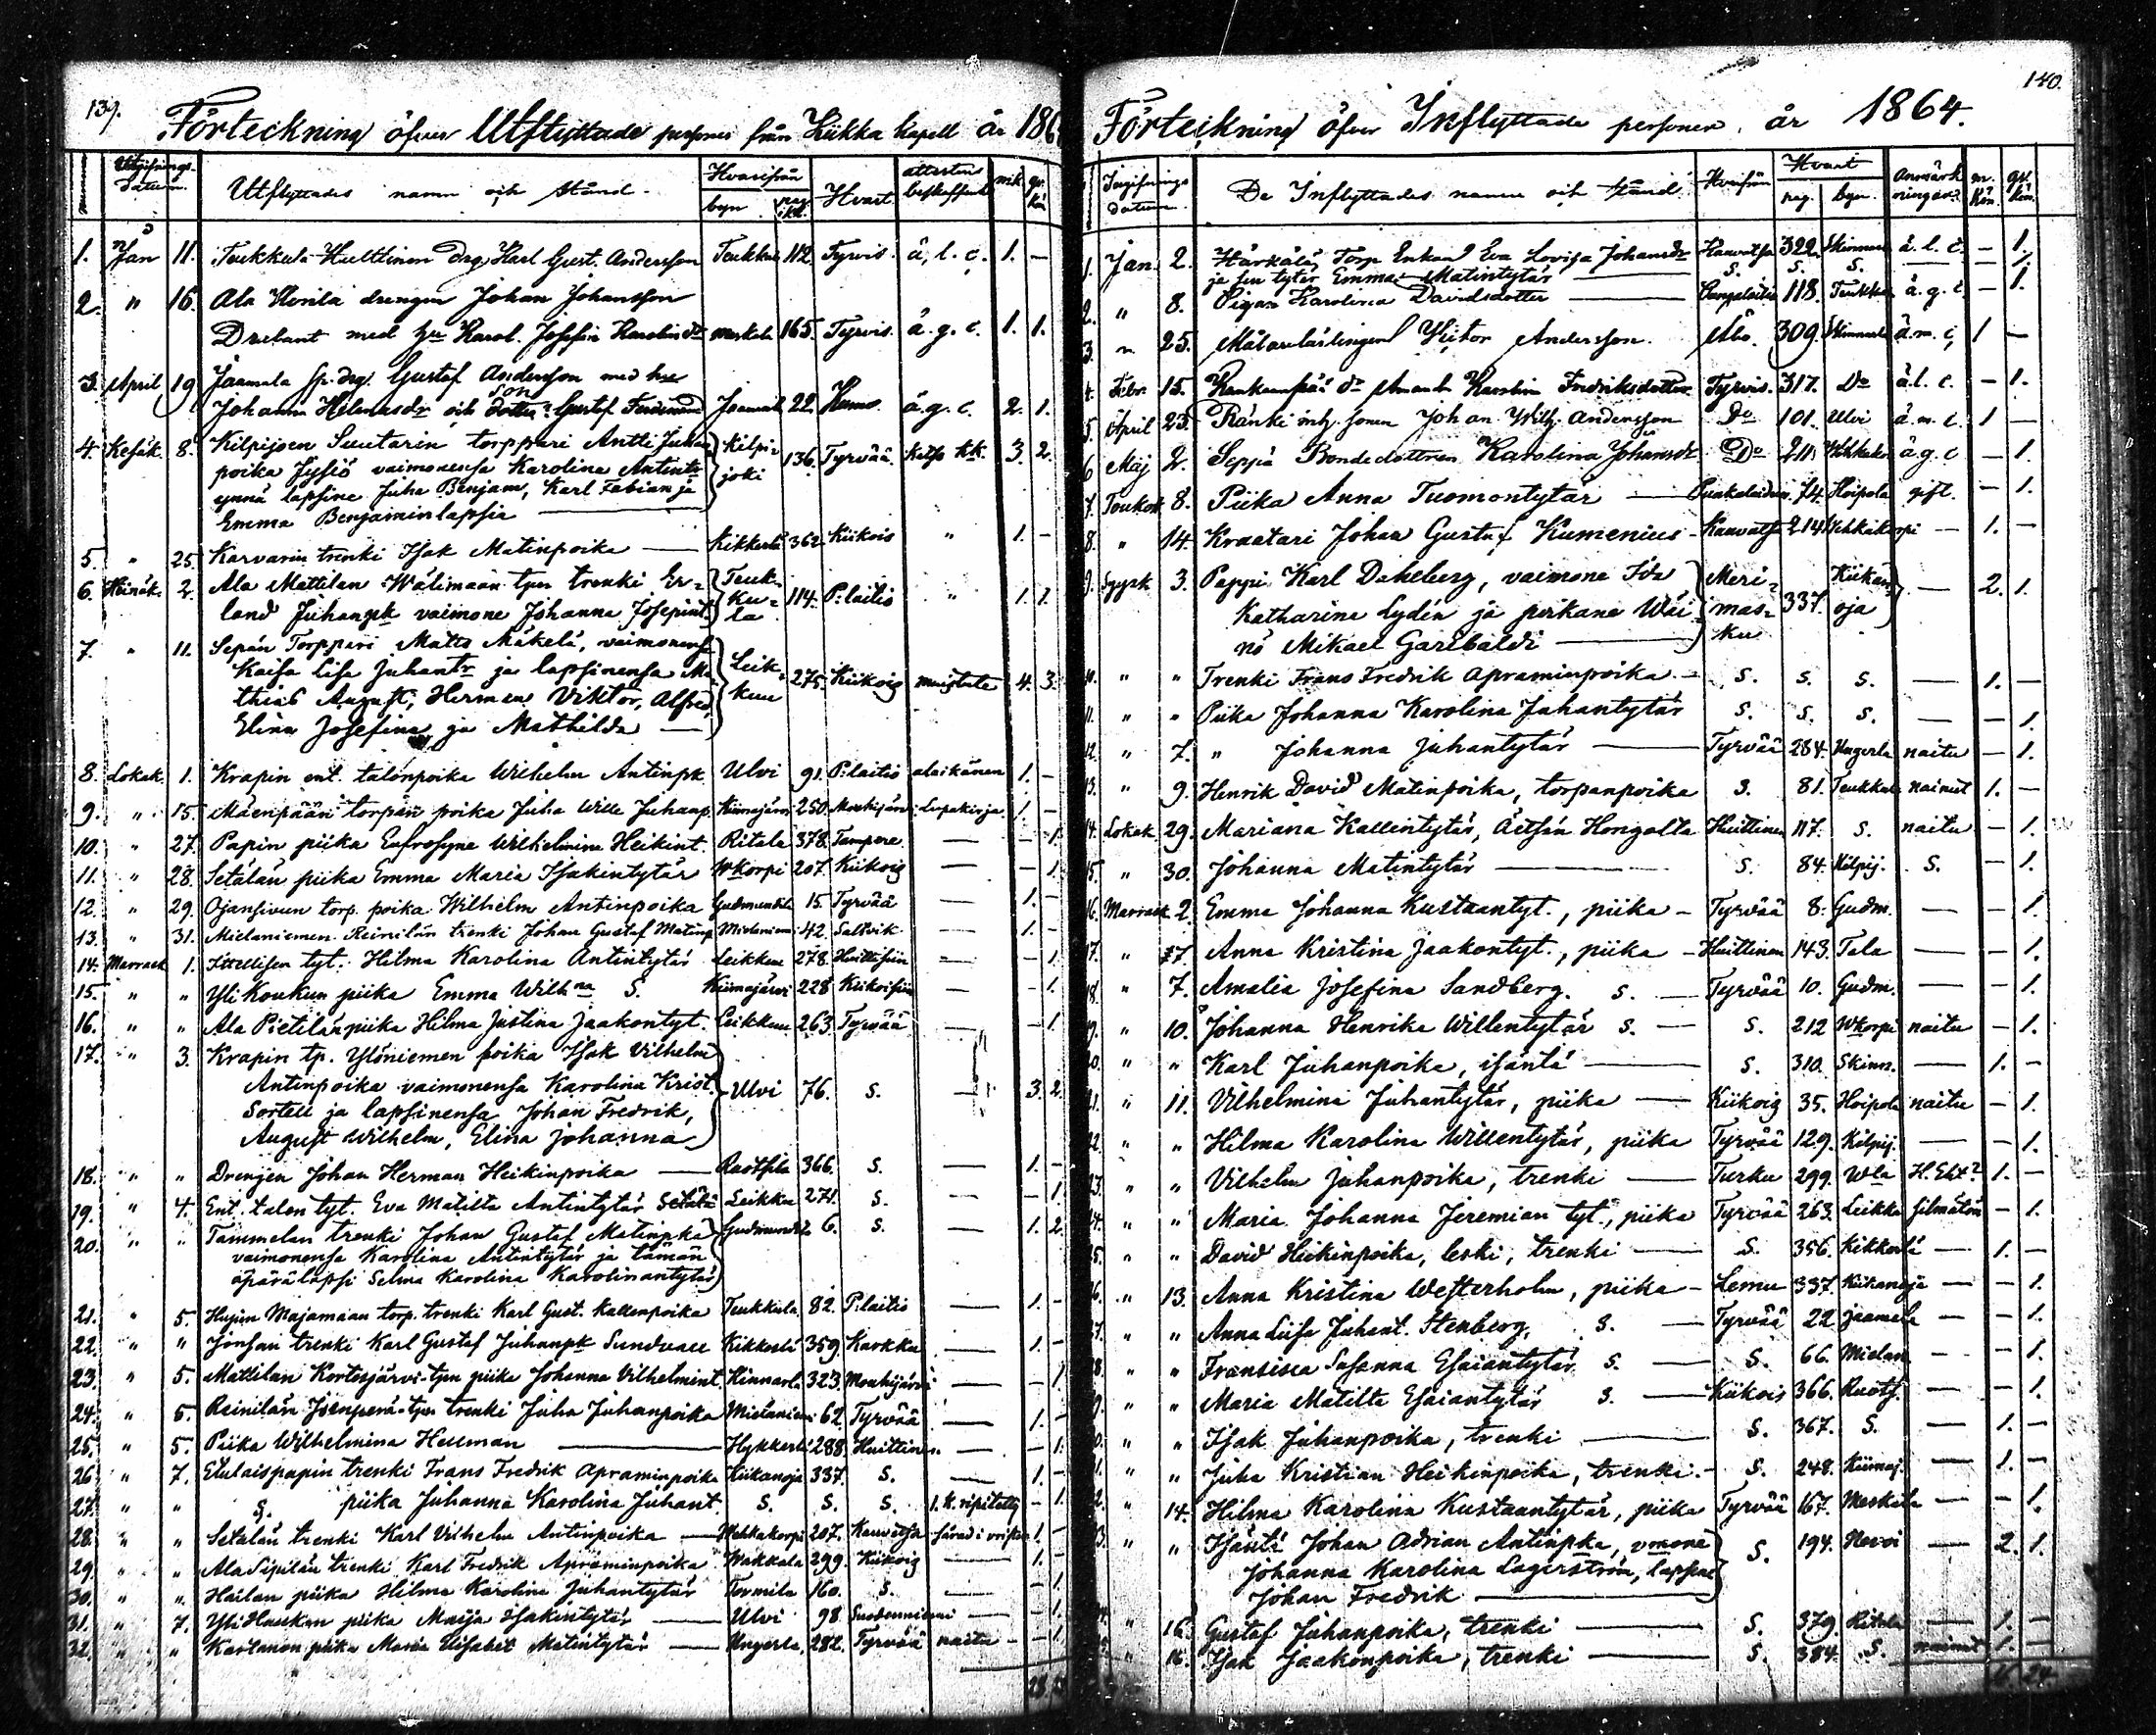 139.
Förteckning öfver Utflyttade personer från Kiikka kapell år 186
Utgifnings Datum.
Utflyttades namn och stånd.
Hvarifrån
byn
Hvart
attestens beskaffenhet
mk
qv. kön
1. Jan 11. Teukkula Hulttinen drg Karl Gust. Andersson Teukkula 112. Tyrvis. ä. l. c. 1. —
2. " 16. Ala drengen Johan Johansson
Drabant med hu Karol. Josefin Karolinadr 165. Tyrvis. ä. g. c. 1. 1.
3. April 19 Jaamala Gustaf Andersson med hu
Johanna Helenasdr och son Gustaf Ferdinand Jaamala 22. ä. g. c. 2. 1.
4. Kesäk. 8. Kilpijoen Suutarin torppari Antti Juhan
poika vaimonensa Karolina Antint.
ynnä lapsine Juha Benjam, Karl Fabian ja
Emma Benjaminlapsia — Kilpijoki 136. Tyrvää kk. 3. 2.
5. " 25. Karvarin trenki Isak Matinpoika — Kikkerlä 362. Kiikois " 1. —
6. Heinäk. 2. Ala Mattilan Wälimaan tpn trenki Er-
land Juhanpk vaimone Johanna Josepint. Teukkula 114. P:laitio " 1. 1.
7. " 11. Sepän Torppari Matts Mäkelä, vaimonensa
Kaisa Lisa Juhantr ja lapsinensa Ma-
thias August, Herman Viktor, Alfred,
Elina Josefina ja Mathilda — Leikkuu 275. Kiikois muistute 4. 3.
8. Lokak. 1. Krapin ent. talonpoika Wilhelm Antinpk. Ulvi 91. P:laitio alaikänen 1. —
9. " 15. Mäenpään torpan poika Juha Wille Juhanp. Kiimajärvi 250. Mouhijärvi Lupakirja 1. —
10. " 27. Papin piika Eufrosyne Wilhelmina Heikint. Ritala 378. Tampere — — 1.
11. " 28. Setälän piika Emma Maria Isakintytär Wkorpi 207. Kiikois — — 1.
12. " 29. Ojansivun torp. poika Wilhelm Antinpoika Gudmundila 15. Tyrvää — 1. —
13. " 31. Mielaniemen Reinilän trenki Johan Gustaf Matinp Mielaniemi 42. Saltvik — 1. —
14. Marrask 1. tyt. Hilma Karolina Antintytär Leikkuu 278. Huittisiin — — 1.
15. " " Yli Koukun piika Emma Wilhna S. Kiimajärvi 228. Kiikoisiin — — 1.
16. " " Ala Pietilän piika Hilma Justina Jaakontyt. Leikkuu 263. Tyrvää — — 1.
17. " 3. Krapin tp. Ylöniemen poika Isak Vilhelm
Antinpoika vaimonensa Karolina Krist.
Sortell ja lapsinensa Johan Fredrik,
August Wilhelm, Elina Johanna Ulvi 76. S. — 3. 2.
18. " " Drenjen Johan Herman Heikinpoika — Ruotsila 366. S. — 1. —
19. " 4. Ent. talon tyt. Eva Matilta Antintytär Setälä Leikkuu 271. S. — — 1.
20. " " Tammelan trenki Johan Gustaf Matinpka
vaimonensa Karolina Antintytär ja tämän
äpärälapsi Selma Karolina Karolinantytär Gudmundila 6. S. — 1. 2.
21. " 5. Hujun Majamaan torp. trenki Karl Gust. Kallenpoika Teukkula 82. P:laitio — 1. —
22. " " Jonsan trenki Karl Gustaf Juhanpk Sundvall Kikkerlä 359. Karkku — 1. —
23. " 5. Mattilan Kortesjärvi-tpn piika Johanna Vilhelmint. Kinnarla 323. Mouhijärvi — — 1.
24. " 5. Reinilän Joenperä-tpn trenki Juha Juhanpoika Mielaniemi 62. Tyrvää — 1. —
25. " 5. Piika Wilhelmina Hellman — 288. Huittinen — — 1.
26. " 7. Etulaispapin trenki Frans Fredrik Apraminpoika Kiikanoja 337. S. — 1. —
27. " " S. piika Juhanna Karolina Juhant. S. S. S. 1. k. ripitetty — 1.
28. " " Setälän trenki Karl Vilhelm Antinpoika — Wehkakorpi 207. Kauvatsa 1. —
29. " " Ala Sipilän trenki Karl Fredrik Apraminpoika Wakkala 299. Kiikois — 1. —
30. " " Hailan piika Hilma Karolina Juhantytär Tormila 160. S. — — 1.
31. " 7. Yli Haukan piika Maija Isakintytär — Ulvi 98. Suodenniemi — — 1.
32. " " Karlanon piika Maria Elisabet Matintytär — Ungerla 282. Tyrvää naitu — 1.
140.
Förteckning öfver Inflyttade personer, år 1864.
Ingifnings datum.
De Inflyttades namn och stånd
Hvarifrån
Hvart
pag. byn.
Anmärkningar.
m. kön. qv. kön.
1. Jan. 2. Härkälä Torp Enkan Eva Lovisa Johansdr Kauvatsa 322. Skinnarla ä. l. c. — 1.
ja sen tytär Emma Matintytär — S. S. S. 1.
2. " 8. Pigan Karolina Davidsdotter — 118. Teukkula ä. g. c. — 1.
3. " 25. Målarelärlingen Viktor Andersson. Åbo. 309. Skinnarla ä. m. c. 1 —
4. Febr. 15. Karolin Fredriksdotter Tyrvis. 317. Do ä. l. c. — 1.
5. April 23. Ränki inh. sonen Johan Wilh. Andersson Do 101. Ulvi ä. m. c. 1 —
6 Maj 2. Seppä Bondedottren Karolina Johansdr Do 211. ä. g. c — 1.
7. Toukok 8. Piika Anna Tuomontytär — Punkalaidun 74. Hoipola gift. — 1.
8. " 14. Kraatari Johan Gustaf Kumenius — Kauvatsa 214. Wehkakorpi — 1. —
9. Syysk 3. Pappi Karl Dahlberg, vaimone Ida
Katharina Lydén ja poikana Wäi-
nö Mikael Garibaldi — Merimasku 337. Kiikanoja — 2. 1.
10. " " Trenki Frans Fredrik Apraminpoika. — S. S. S. — 1. —
11. " " Piika Johanna Karolina Juhantytär S. S. S. — — 1.
12. " 7. " Johanna Juhantytär — Tyrvää 284. Ungerla naitu — 1.
13. " 9. Henrik David Matinpoika, torpanpoika S. 81. Teukkula nainut 1. —
14. Lokak. 29. Mariana Kallentytär, Äetsän Hongolta Huittinen 117. S. naitu — 1.
15. " 30. Johanna Matintytär — S. 84. Kilpij. S. — 1.
16. Marrask 2. Emma Johanna Kustaantyt., piika — Tyrvää 8. Gudm. — — 1.
17. " 7. Anna Kristina Jaakontyt., piika — Huittinen 143. Tala — — 1.
18. " 7. Amalia Josefina Sandberg. S. — Tyrvää 10. Gudm. — — 1.
19. " 10. Johanna Henrika Willentytär S. — S. 212 Wkorpi naitu — 1.
20. " " Karl Juhanpoika, isäntä — S. 310. Skinn. — 1. —
21. " 11. Vilhelmina Juhantytär, piika — Kiikois 35. Hoipola naitu — 1.
22. " " Hilma Karolina Willentytär, piika Tyrvää 129. Kilpij. — — 1.
23. " " Vilhelm Juhanpoika, trenki — Turku 299. Wla 1. —
24. " " Maria Johanna Jeremian tyt., piika Tyrvää 263. Leikku silmätön — 1.
25. " " David Heikinpoika, leski, trenki — S. 356. Kikkerlä — 1. —
26. " 13. Anna Kristina Westerholm, piika — Lemu 337. Kiikanoja — — 1.
27. " " Anna Liisa Juhant. Stenberg, S. — Tyrvää 22 Jaamala — — 1.
28. " " Fransiska Susanna Esaiantytär S. — S. 66. Mielan — — 1.
29. " " Maria Matilta Esaiantytär S. — Kiikois 366. Ruots. — — 1.
30. " " Isak Juhanpoika, trenki — S. 367. S. — 1. —
31. " " Juha Kristian Heikinpoika, trenki. — S. 248. Kiimaj. — 1. —
32. " 14. Hilma Karolina Kustaantytär, piika Tyrvää 167. Meskala — — 1.
33. " " Isäntä Johan Adrian Antinpka, vmone
Johanna Karolina Lagerström, lapsene
Johan Fredrik — S. 194. — 2. 1.
" 16. Gustaf Juhanpoika, trenki — S. 379. Ritala — 1. —
" 16. Isak Jaakonpoika, trenki — S. 384. S. nainut 1. —